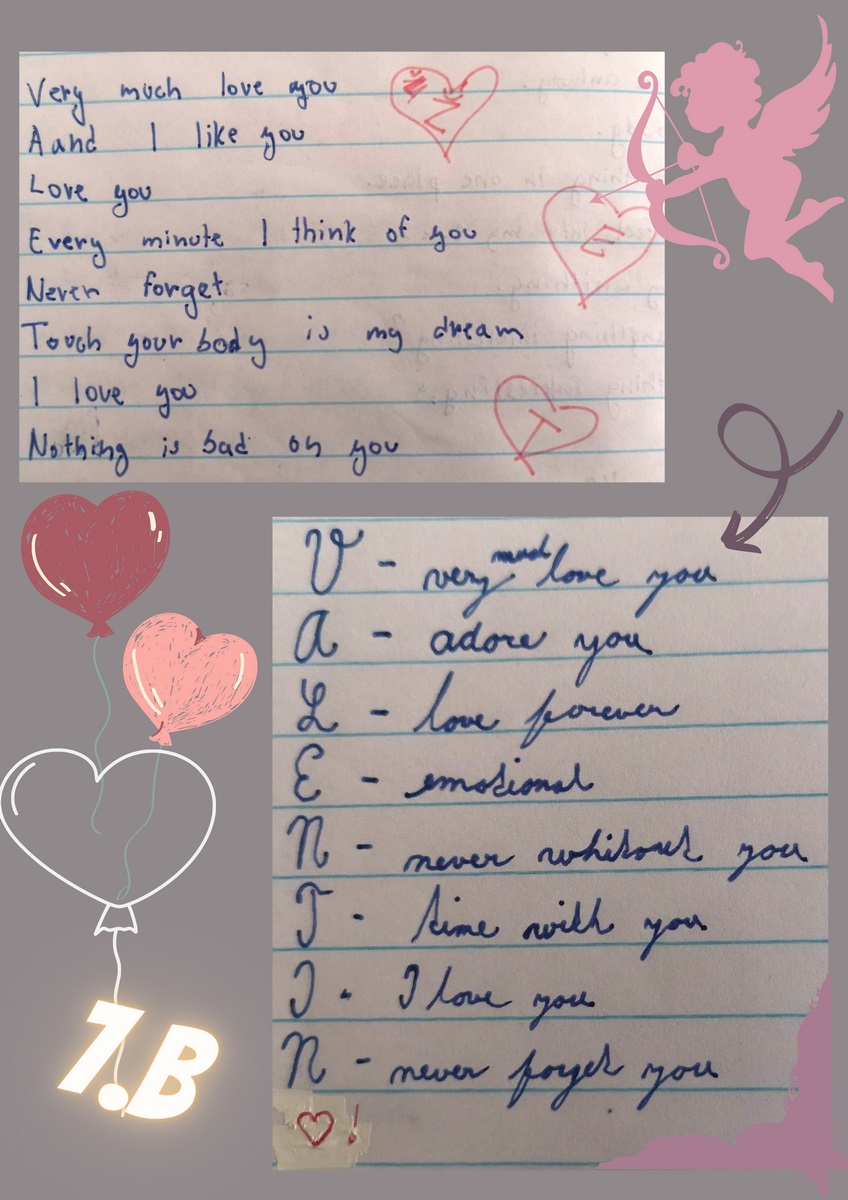 Very much love you
Aand I like you
Love you
Every minute I think of you
Never forget
Touch your body is my dream
I love you
Nothing is bad on you
V - very much love you
A - adore you
L - love forever
E - emotional
N - never whitout you
T - time with you
I - I love you
N - never forget you
!
7.B